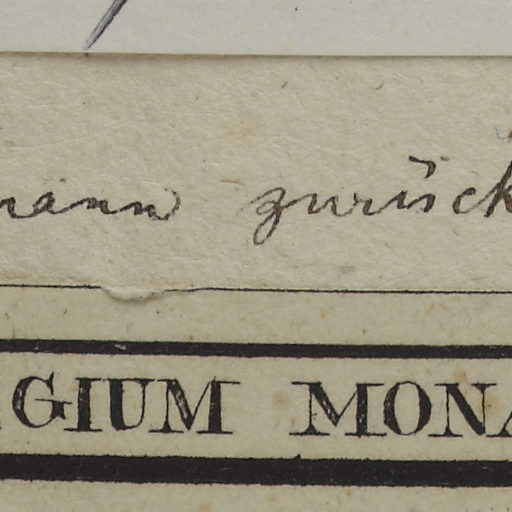 mann zurück
GIUM MONA